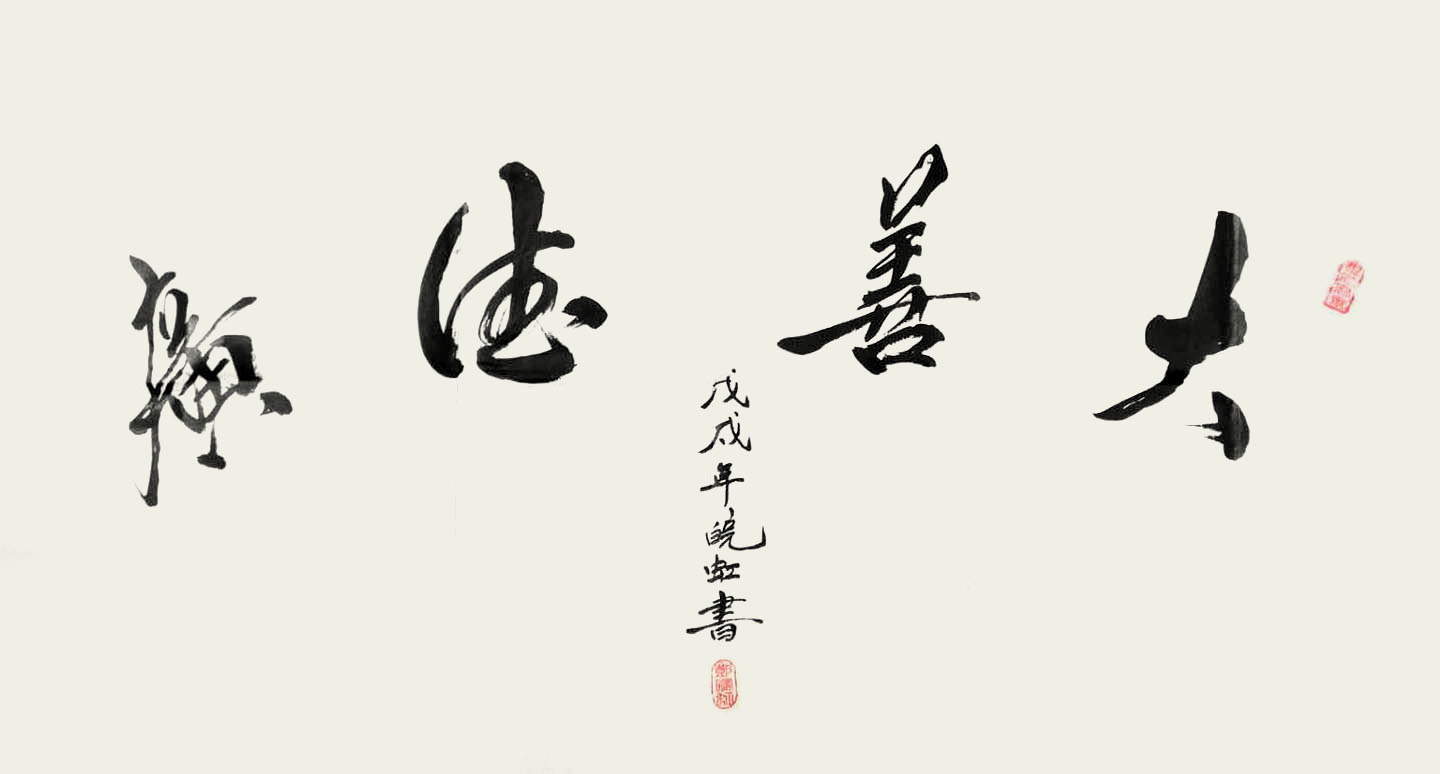 大善德
戊戌年皖虹書